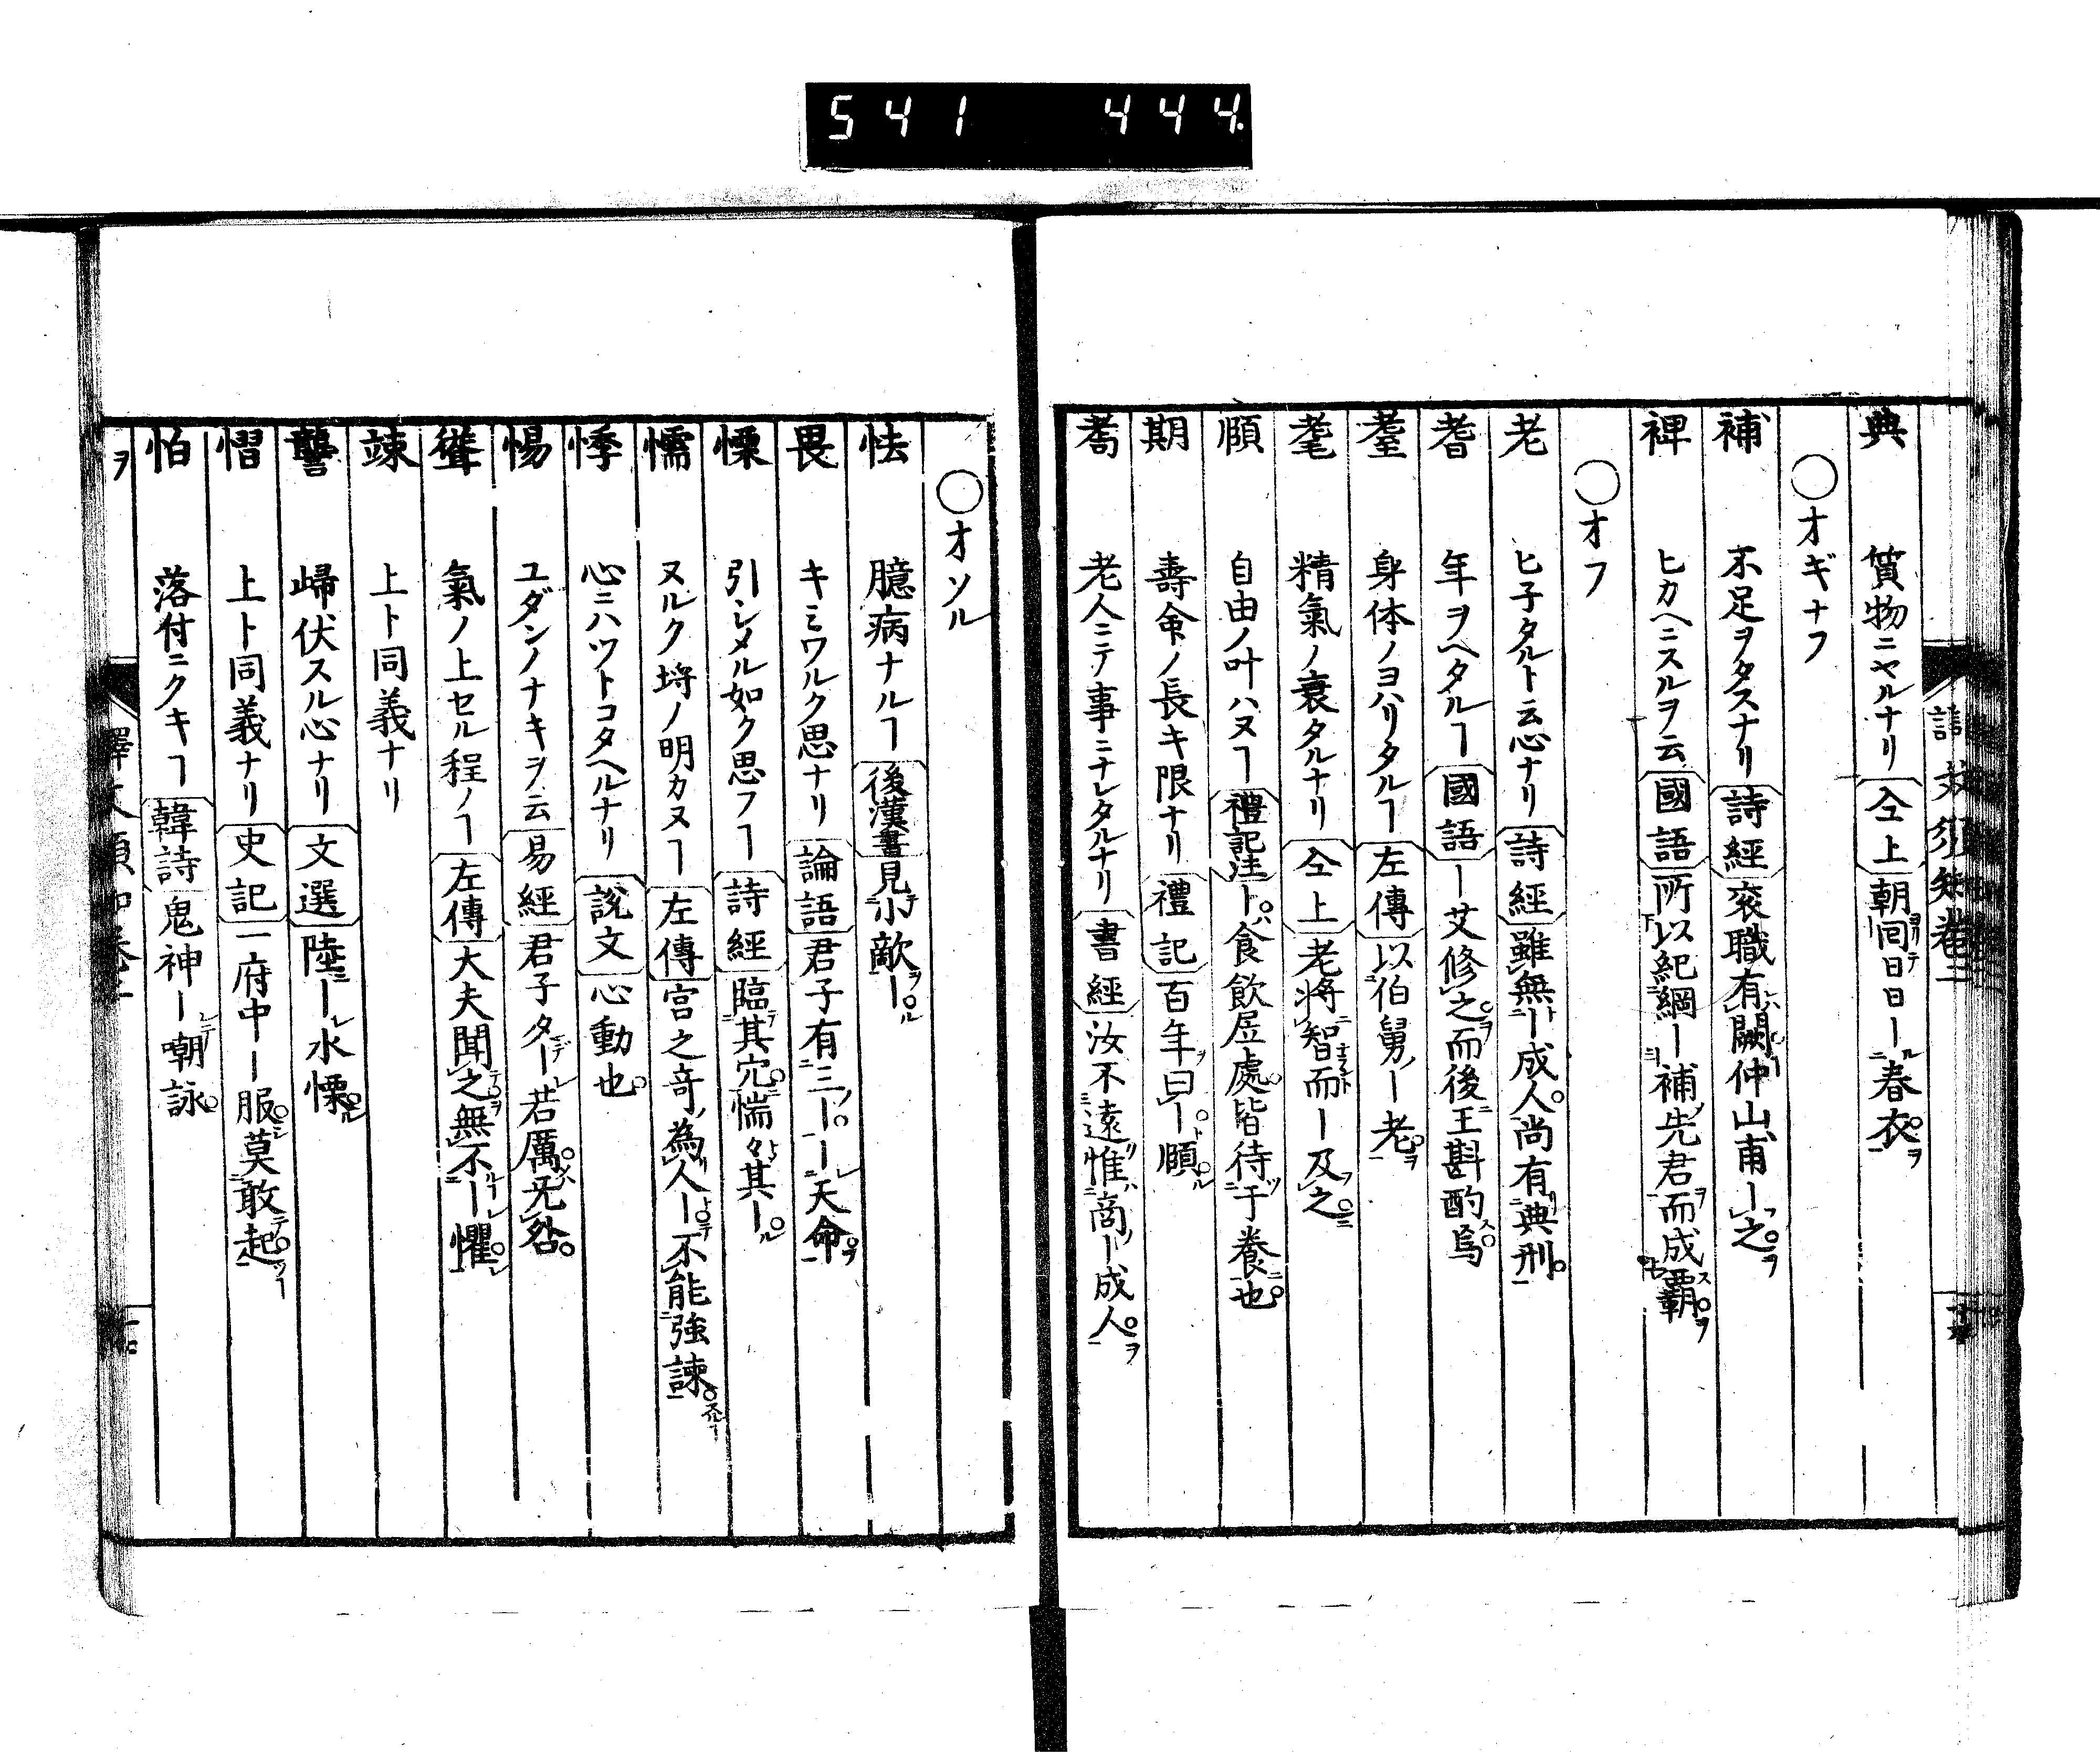 541 444
典 質物ニヤルナリ 仝上 朝囘日日ー春衣
○オギナフ
補 不足ヲタスナリ 詩經 衮職有闕仲山甫ー之
裨 ヒカヘニスルヲ云 國語 所以紀綱ー補先君而成覇
○オフ
老 ヒ子タルト云心ナリ 詩經 雖無ー成人尚有典刑
耆 年ヲヘタルヿ 國語 ー艾修之而後王斟酌焉
耋 身体ノヨハリタルヿ 左傳 以伯舅ー老
耄 精氣ノ衰タルナリ 仝上 老将智而ー及之
頤 自由ノ叶ハヌヿ 禮記注 ー食飲居處皆待于養也
期 壽命ノ長キ限ナリ 禮記 百年曰ー頤
耇 老人ニテ事ニナレタルナリ 書經 汝不遠惟商ー成人
○オソル
怯 臆病ナルヿ 後漢書 見小敵ー
畏 キミワルク思ナリ 論語 君子有三ーー天命
慄 引シメル如ク思フヿ 詩經 臨其穴惴々其ー
懦 ヌルク埒ノ明カヌヿ 左傳 宮之奇為人ー不能強諫
悸 心ニハツトコタヘルナリ 説文 心動也
惕 ユダンノナキヲ云 易經 君子夕ー若厲无咎
聳 氣ノ上セル程ノヿ 左傳 大夫聞之無不ー懼
竦 上ト同義ナリ
讋 歸伏スル心ナリ 文選 陸ー水慄
慴 上ト同義ナリ 史記 一府中ー服莫敢起
怕 落付ニクキヿ 韓詩 鬼神ー嘲詠
ヲ